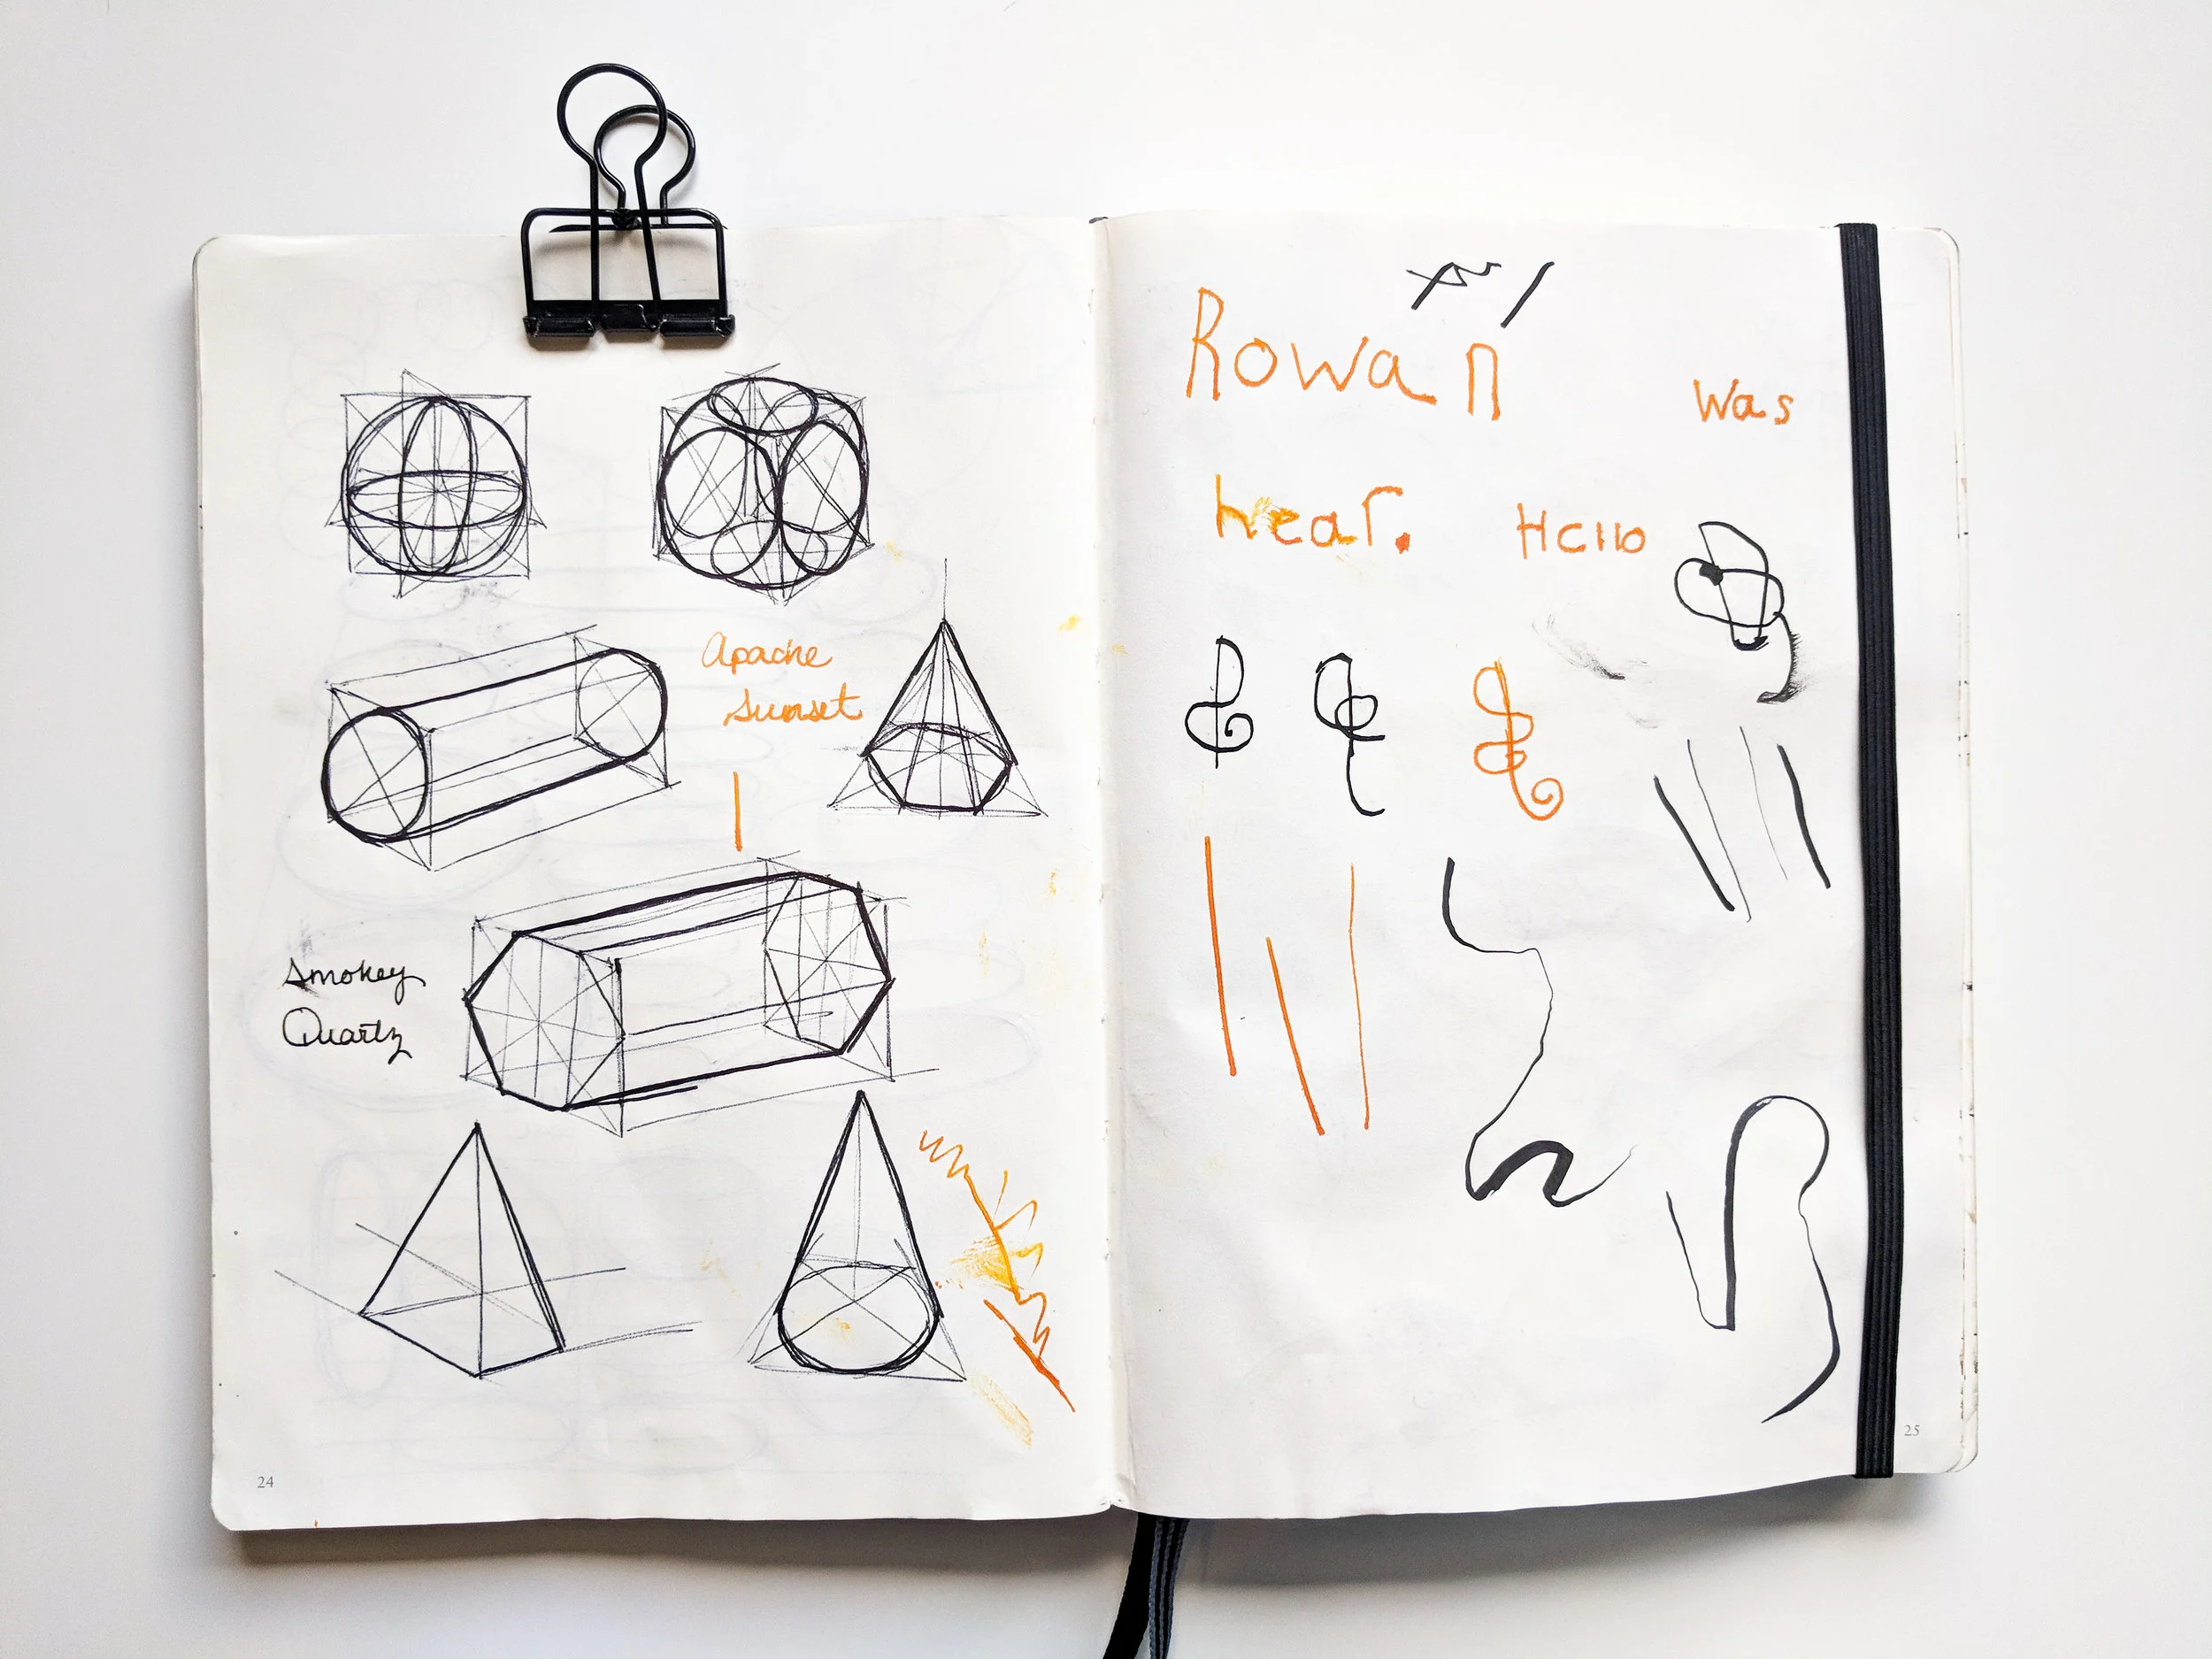 Apache
Sunset
Smokey
Quartz
24
Rowan
was
hear. Hello
25